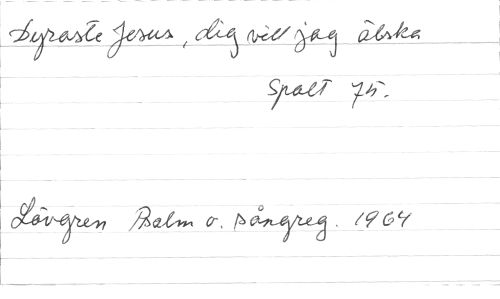 Dyraste Jesus, dig vill jag älska
Spalt 75.
Lövgren Psalm o. sångreg. 1964